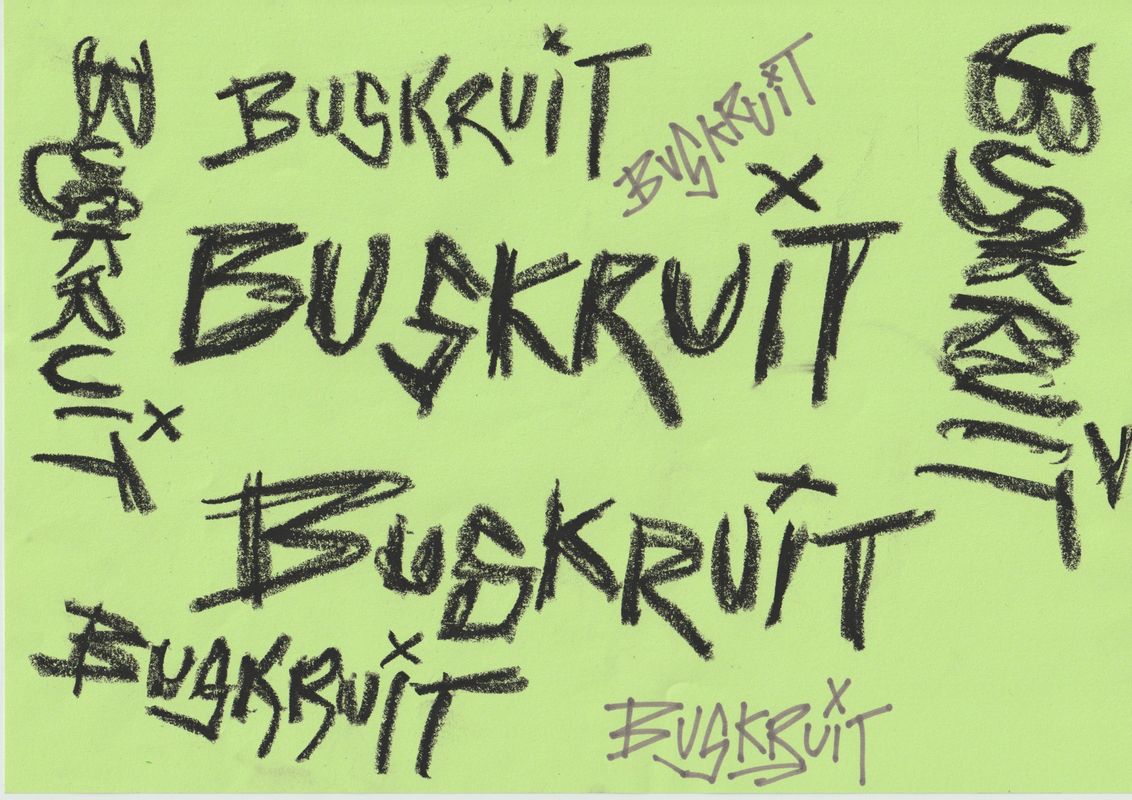 BUSKRUiT
BUSKRUiT
BUSKRUiT
BUSKRUiT
BUSKRUiT
BUSKRUiT
BUSKRUiT
BUSKRUiT